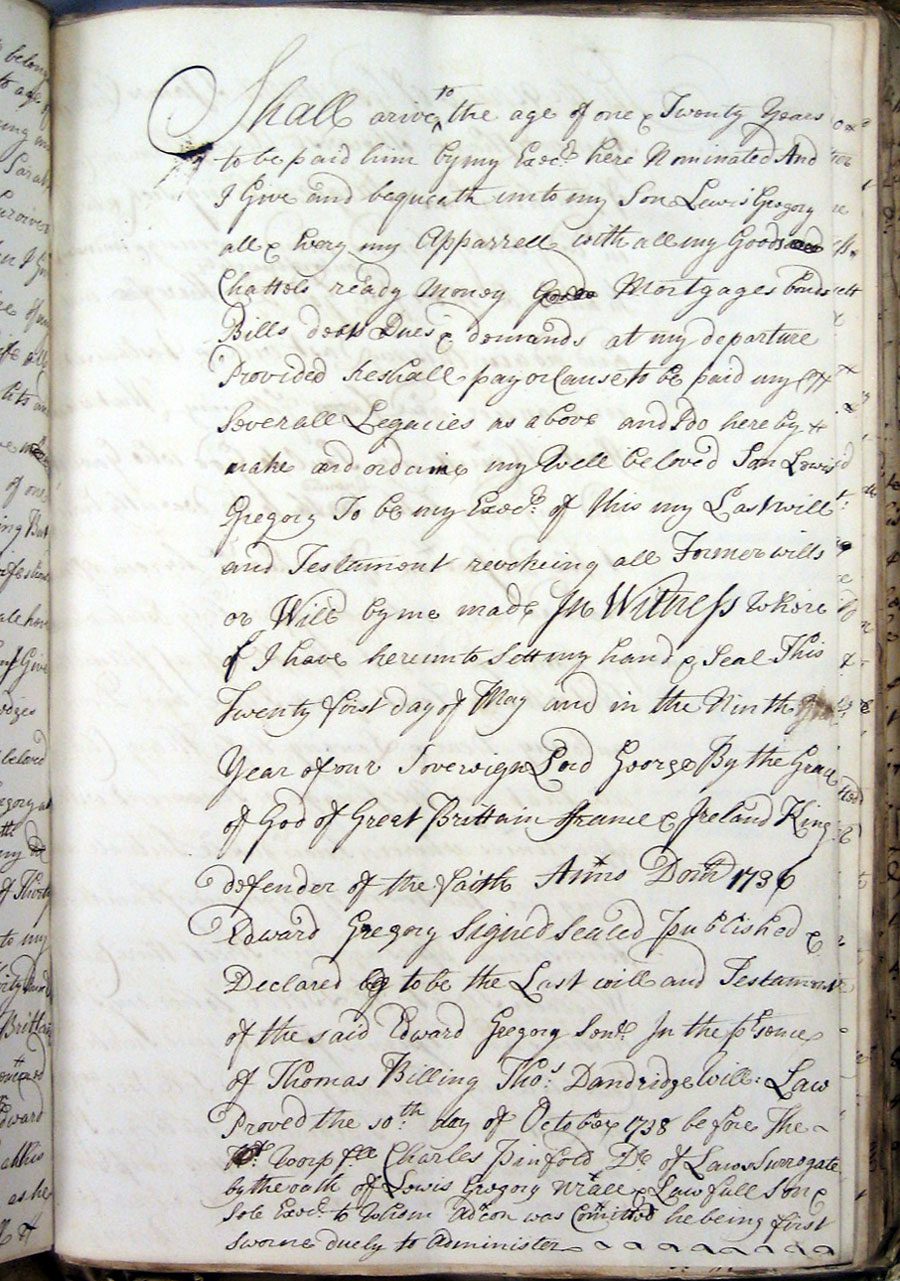 Shall arive to the age of one & Twenty Years
to be paid him by my Execr here Nominated And
I Give and bequeath unto my Son Lewis Gregory
all & Every my Apparrell with all my Goods
Chattols ready Money Mortgages bonds
Bills debts Dues & demands at my departure
Provided he shall pay or Cause to be paid my
Severall Legacies as above and I do hereby
make and ordaine my Well beloved Son Lewis
Gregory To be my Execr of this my Last will
and Testament revokeing all Former wills
or Will by me made In Witness Where
of I have hereunto Sett my hand & Seal This
Twenty first day of May and in the Ninth
Year of our Sovereign Lord George By the Grace
of God of Great Brittain France & Ireland King
defender of the Faith Anno Dom 1736
Edward Gregory Signed Sealed Published &
Declared to be the Last will and Testament
of the said Edward Gregory Senr In the psence
of Thomas Billing Thos Dandridge Will: Law
Proved the 10th day of October 1738 before The
Worp Charles Pinfold Dr of Laws Surrogate
by the oath of Lewis Gregory Nrall & Lawfull Son &
Sole Execr to Whom Adcon was Comitted he being first
Sworne duely to Administer